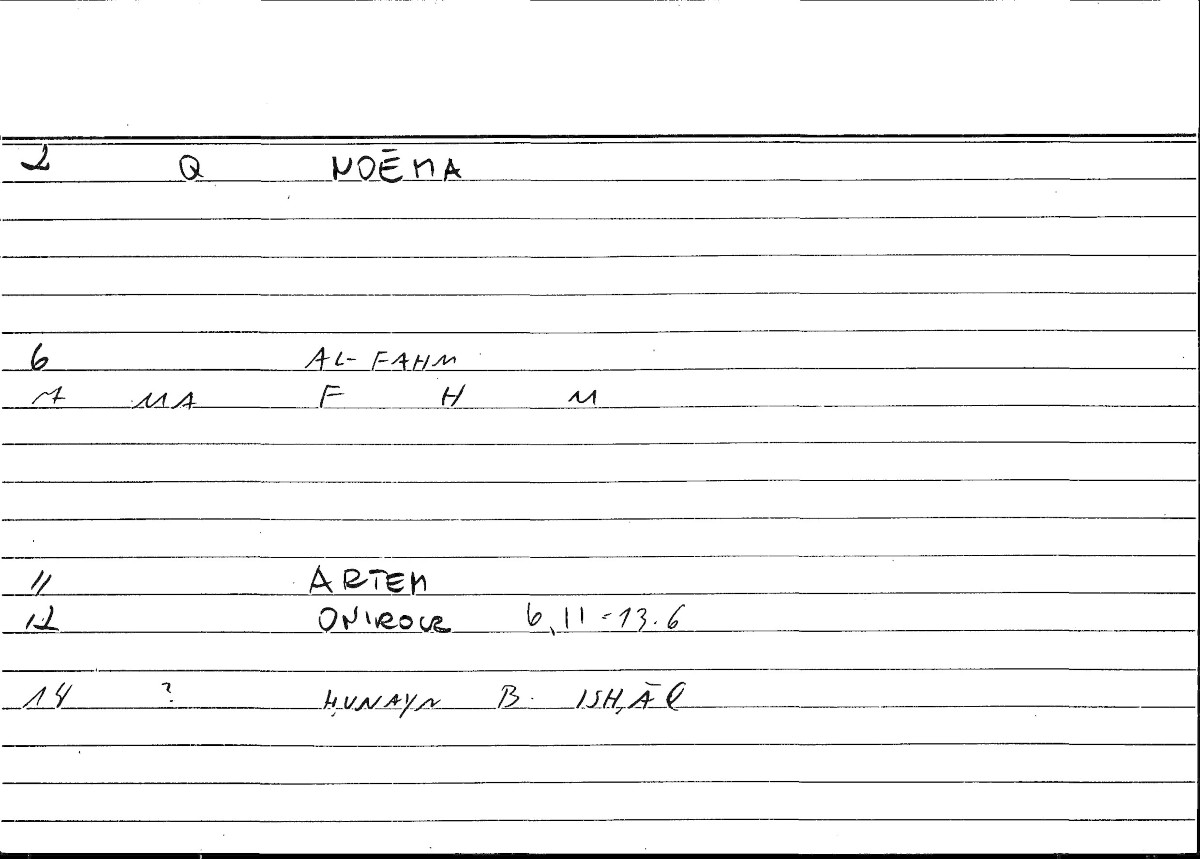 2 Q NOĒMA
6 AL-FAHM
7 MA F H M
11 ARTEM
12 ONIROCR 6,11-13.6
14 ? ḤUNAYN B. ISḤĀQ